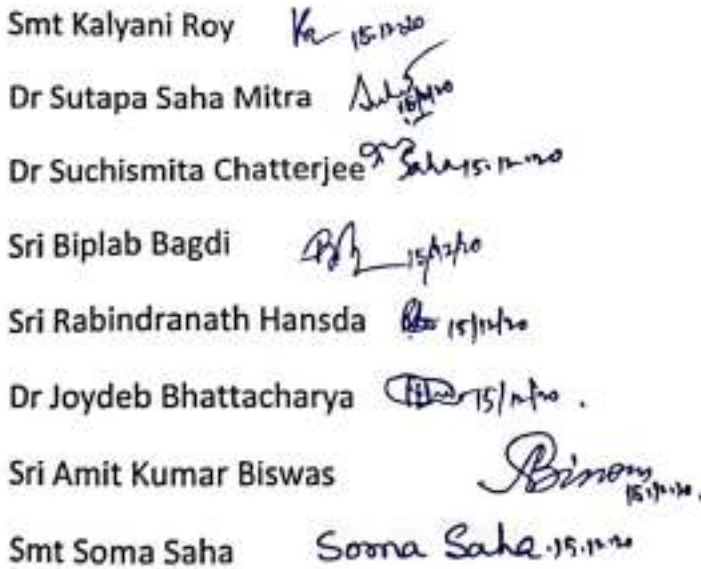 Smt Kalyani Roy 15.12.20
Dr Sutapa Saha Mitra
Dr Suchismita Chatterjee Saha 15.12.20
Sri Biplab Bagdi 15/12/20
Sri Rabindranath Hansda 15/12/20
Dr Joydeb Bhattacharya 15/12/20 .
Sri Amit Kumar Biswas 15.12.20.
Smt Soma Saha Soma Saha 15.12.20